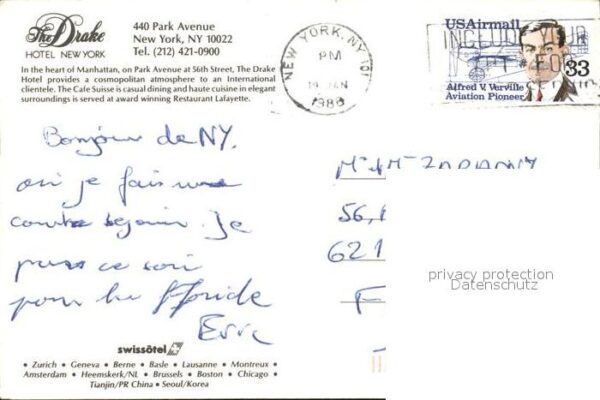 The Drake
HOTEL NEW YORK
440 Park Avenue
New York, NY 10022
Tel. (212) 421-0900
In the heart of Manhattan, on Park Avenue at 56th Street, The Drake
Hotel provides a cosmopolitan atmosphere to an International
clientele. The Cafe Suisse is casual dining and haute cuisine in elegant
surroundings is served at award winning Restaurant Lafayette.
NEW YORK, NY 101
PM
1986
USAirmail
INCLUDE YOUR
APT #
33
Alfred V. Verville
Aviation Pioneer
Bonjour de NY.
où je fais une
courte séjour. Je
pars ce soir
pour la Floride
56,
621
F
privacy protection
Datenschutz
swissôtel
• Zurich • Geneva • Berne • Basle • Lausanne • Montreux •
Amsterdam • Heemskerk/NL • Brussels • Boston • Chicago •
Tianjin/PR China • Seoul/Korea